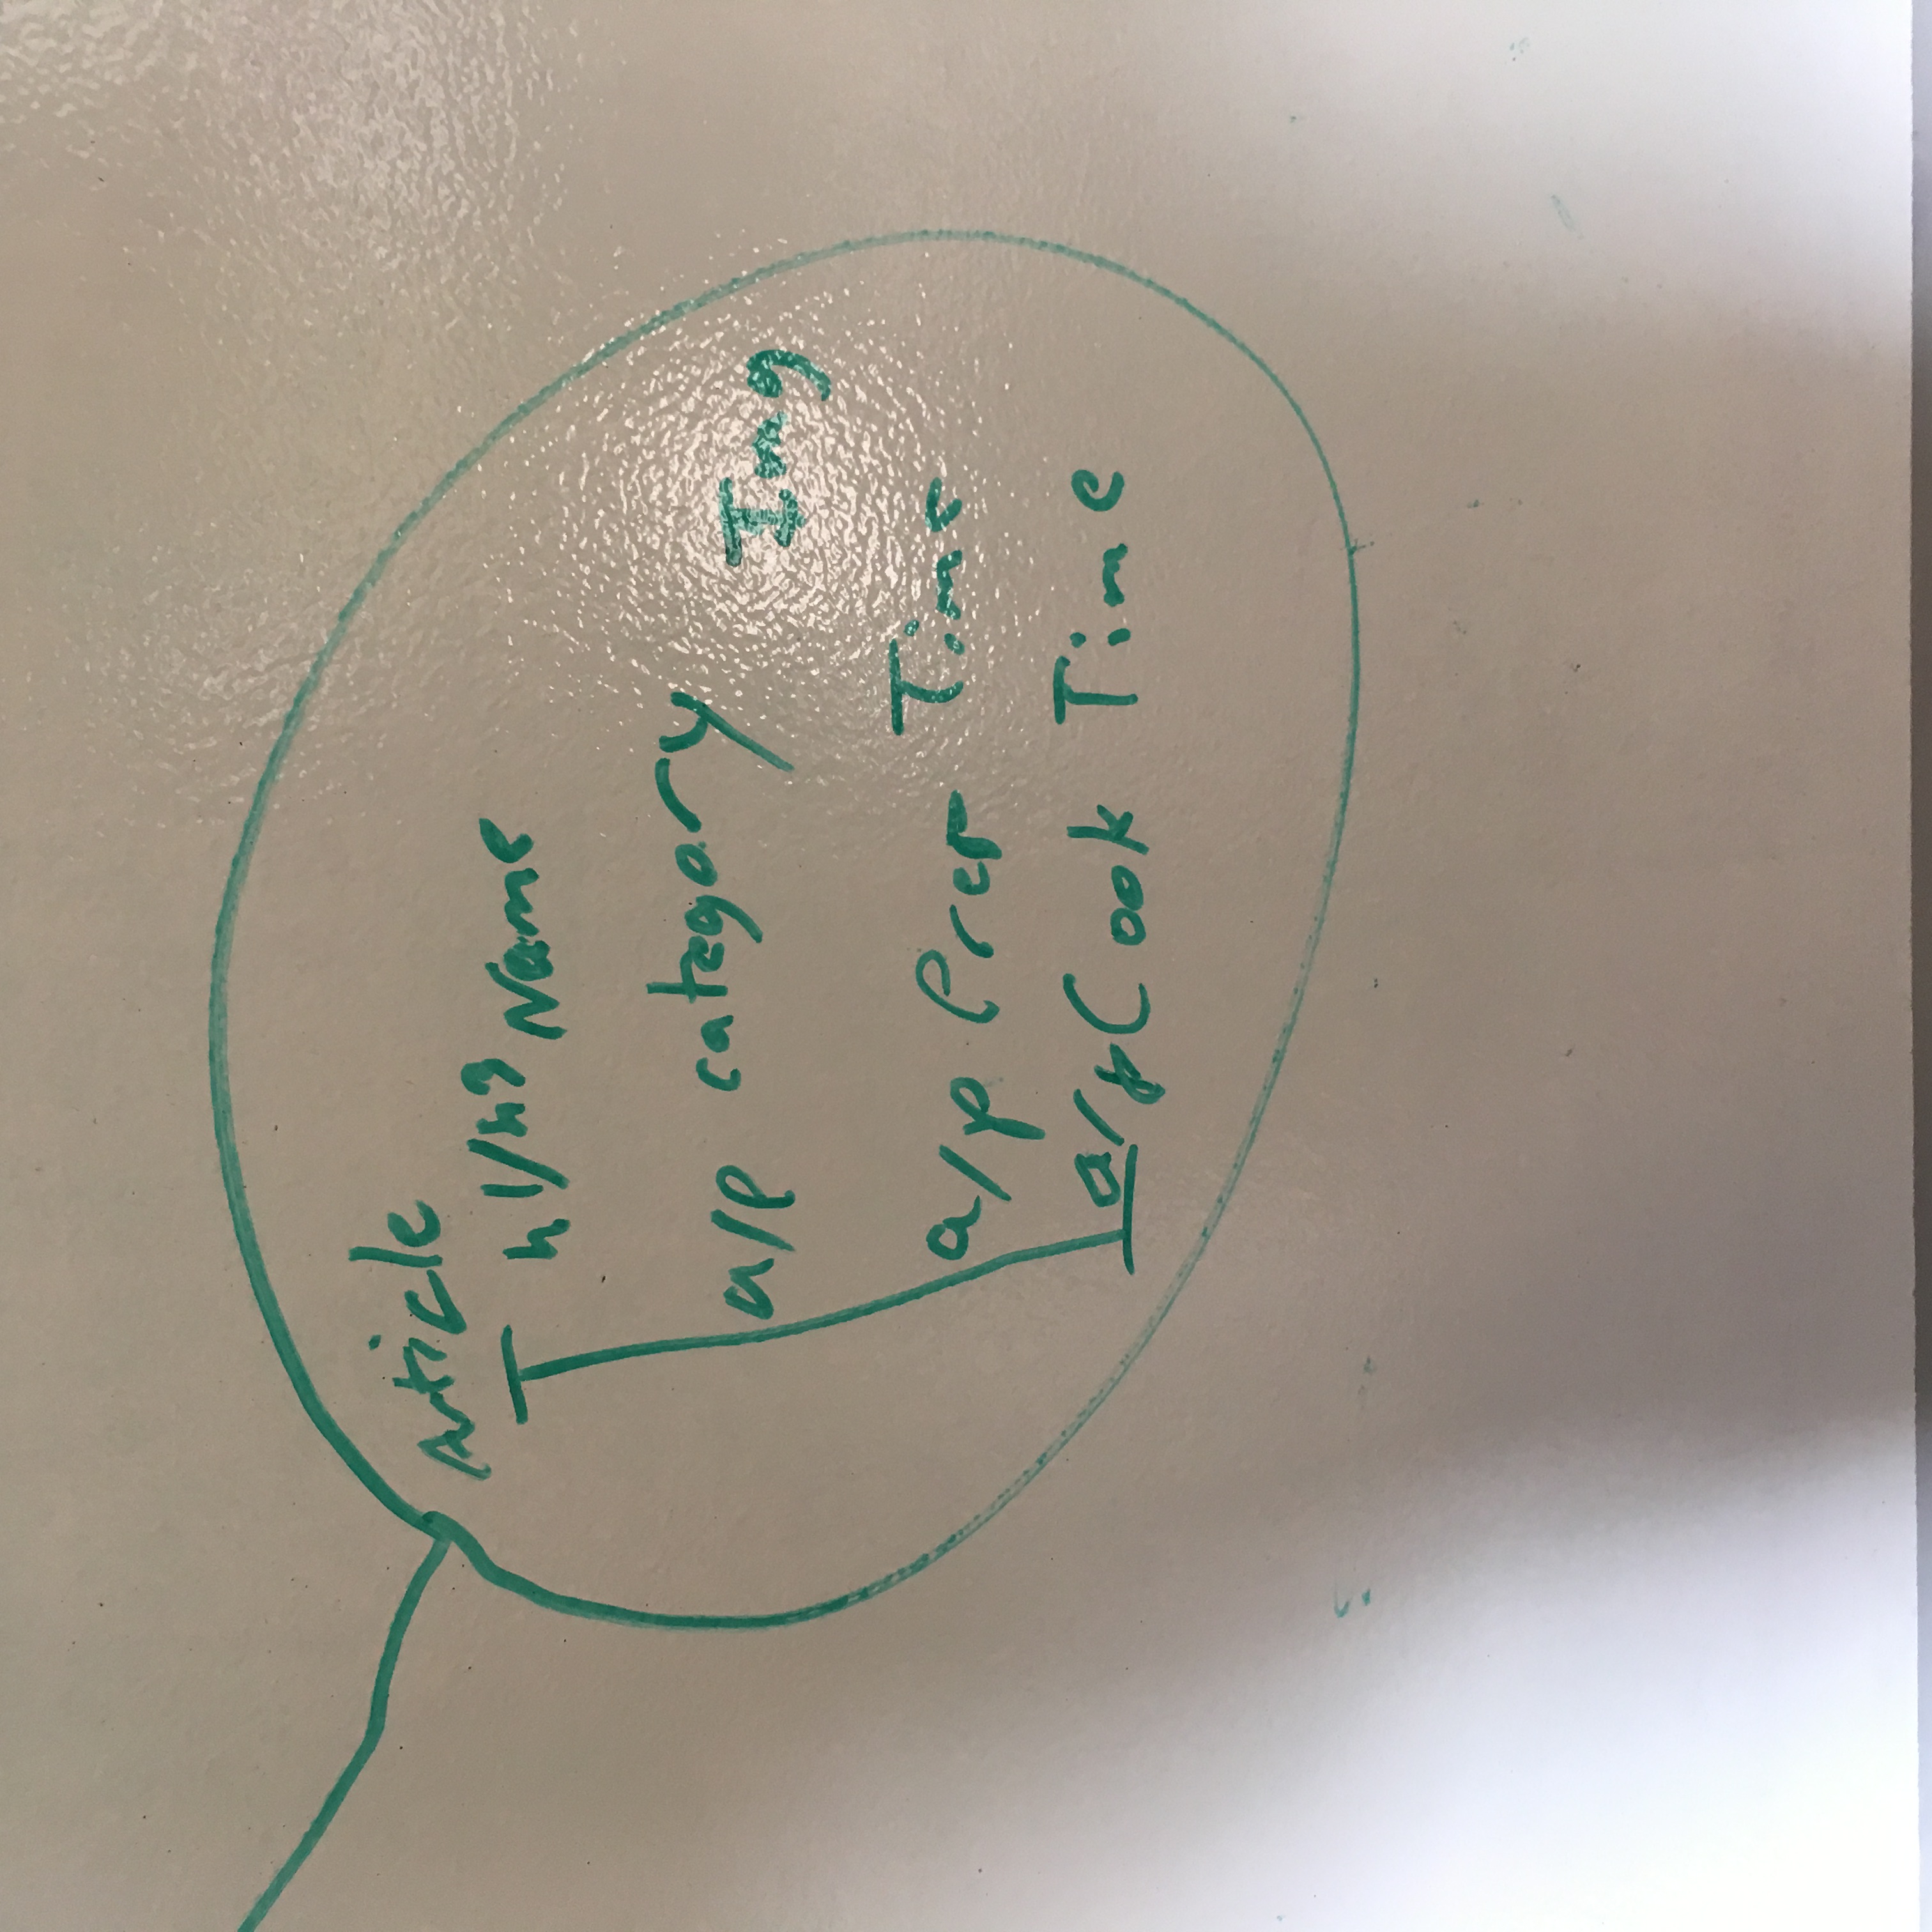 Article
h1/h3 Name
a/p category
Img
a/p Prep Time
a/p Cook Time